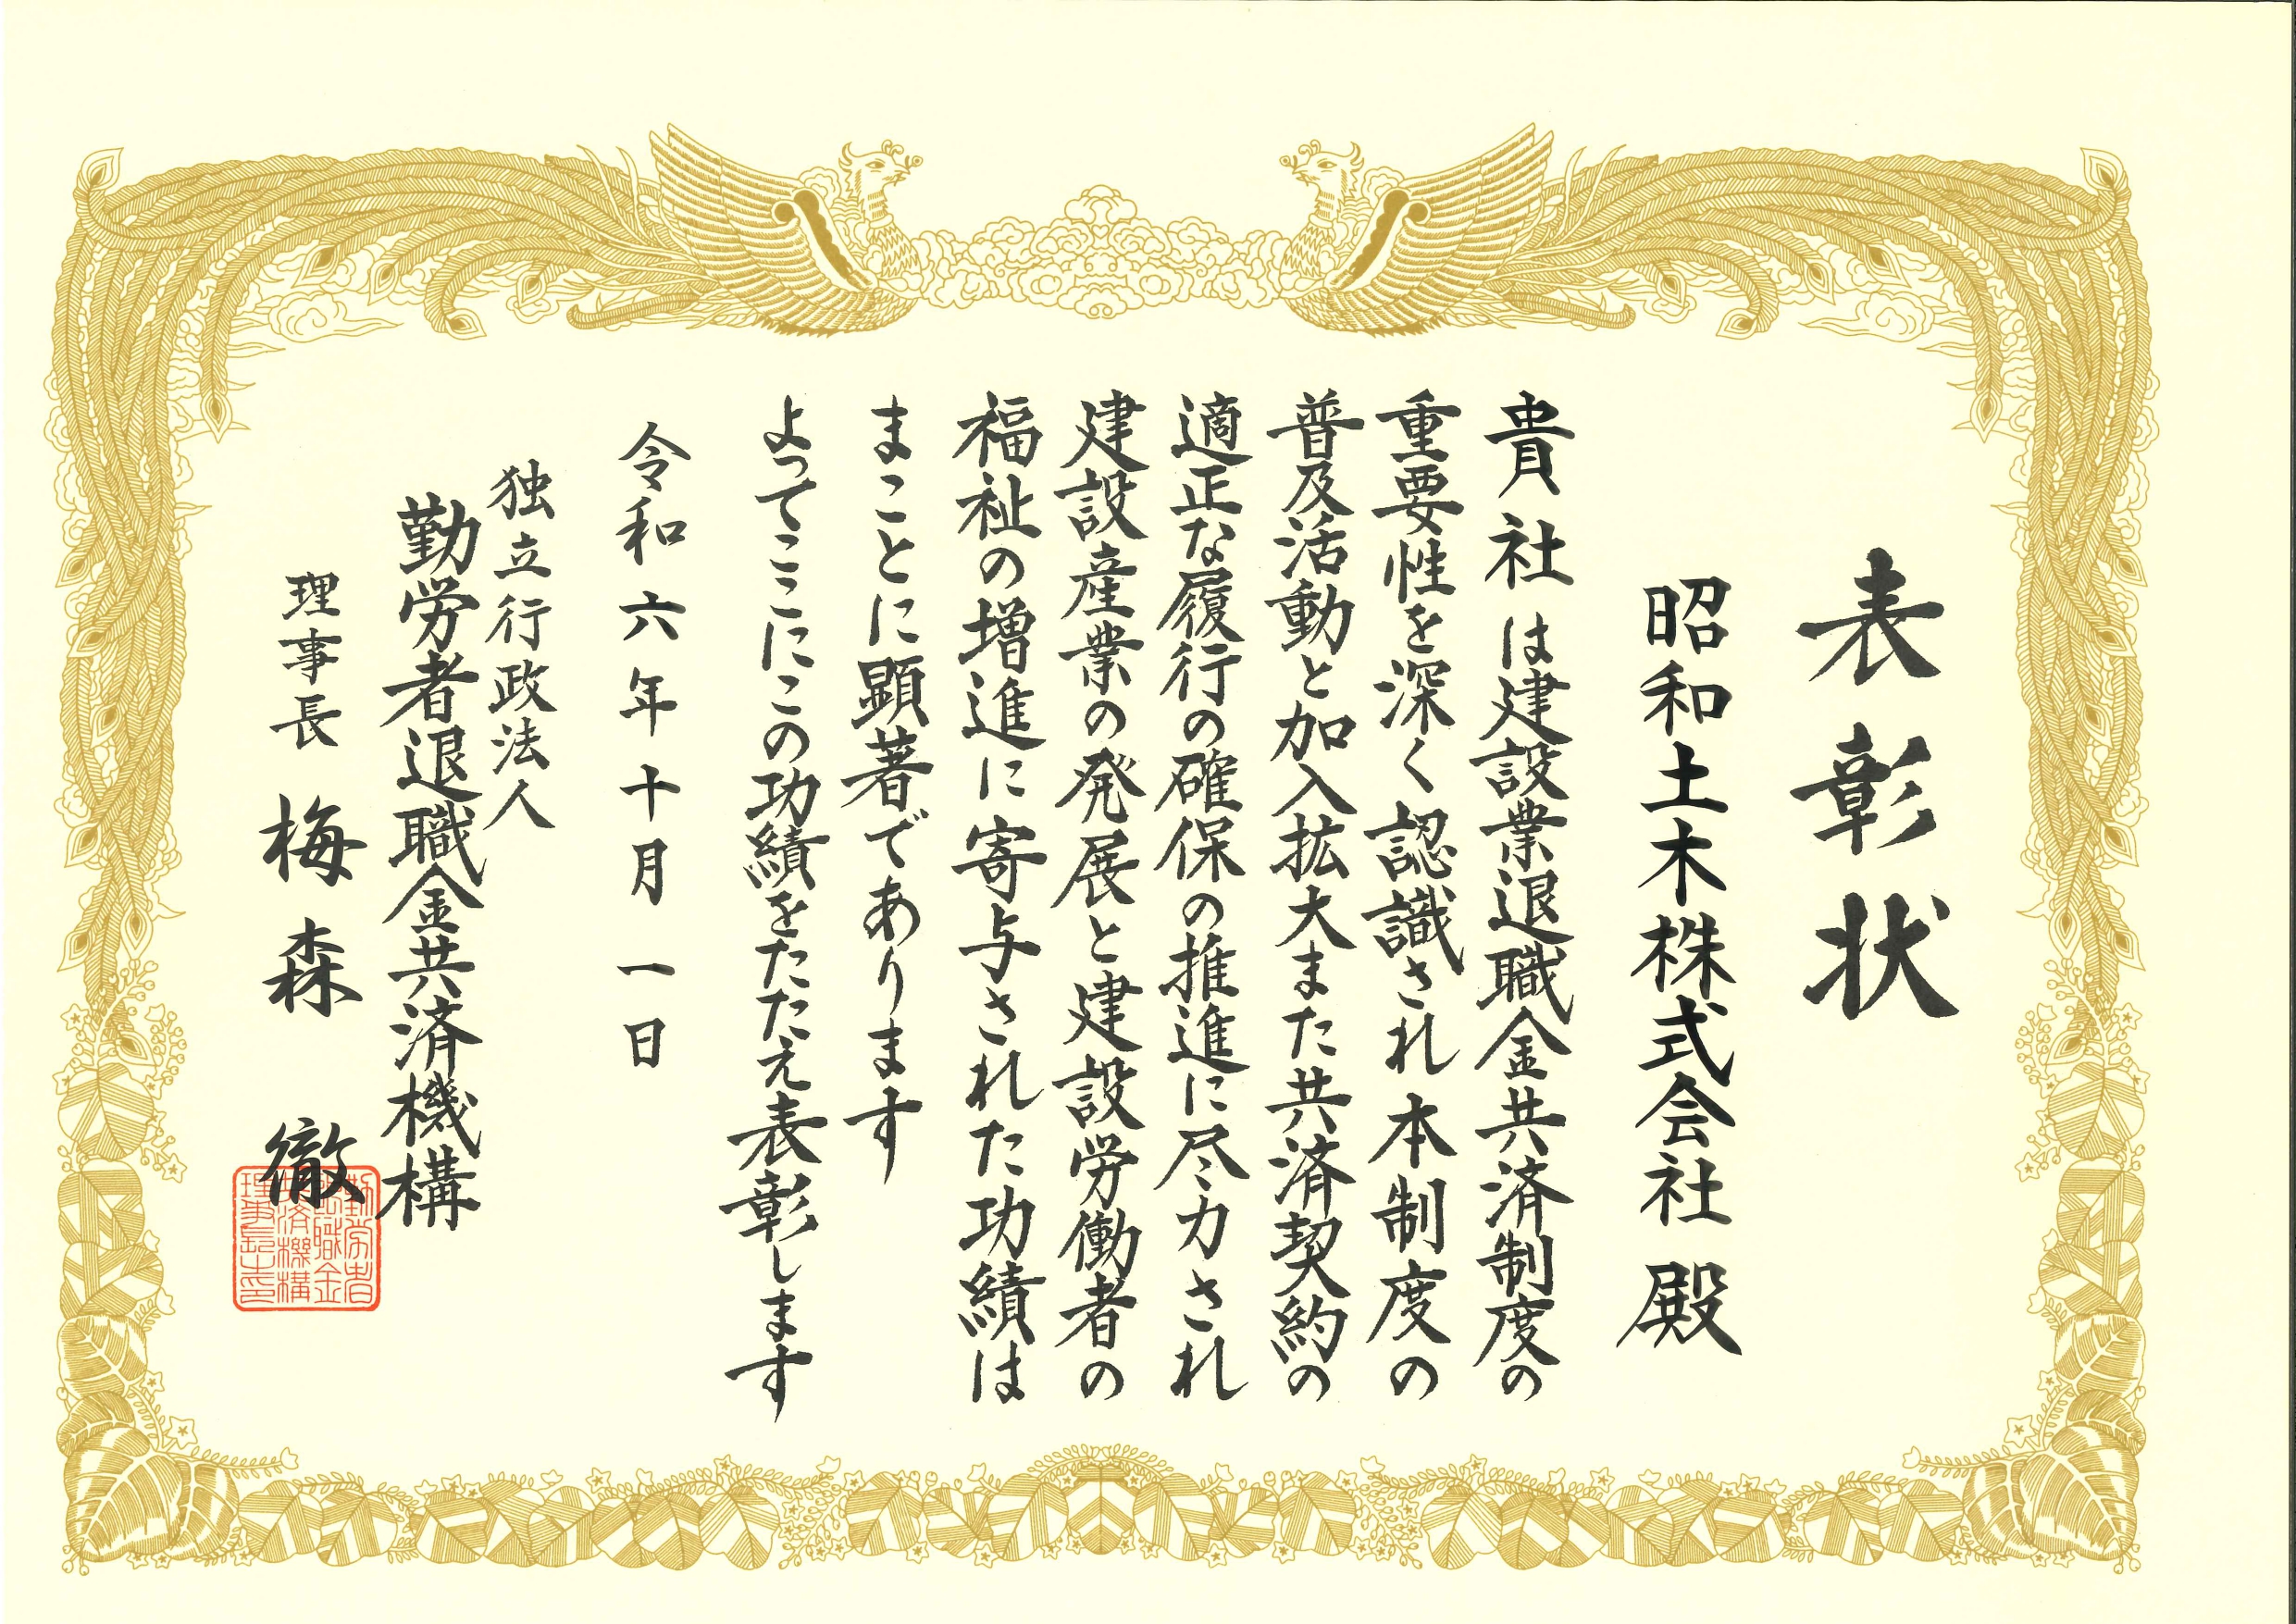 表彰状
昭和土木株式会社 殿
貴社は建設業退職金共済制度の
重要性を深く認識され本制度の
普及活動と加入拡大また共済契約の
適正な履行の確保の推進に尽力され
建設産業の発展と建設労働者の
福祉の増進に寄与された功績は
まことに顕著であります
よってここにこの功績をたたえ表彰します
令和六年十月一日
独立行政法人
勤労者退職金共済機構
理事長 梅森 徹
勤労者
退職金
共済機構
理事長之印